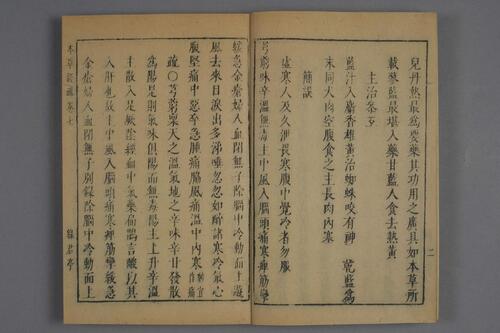 兒丹熱最爲要藥其功用之廣具如本草所
載蓼藍最堪入藥甘藍人食去熱黃
主治參互
藍汁入麝香雄黃治蜘蛛咬有神
乾藍爲
末同犬肉空腹食之主長肉內塞
簡誤
虛寒人及久泄畏寒腹中覺冷者勿服
芎藭味辛溫無毒主中風入腦頭痛寒痺筋攣
緩急金瘡婦人血閉無子除腦中冷動面上遊
風去來目淚出多涕唾忽忽如醉諸寒冷氣心
腹堅痛中惡卒急腫痛脇風痛溫中內寒
疏〇芎藭稟天之溫氣地之辛味辛甘發散
爲陽是則氣味俱陽而無毒陽主上升辛溫
主散入足厥陰經血中氣藥扁鵲言酸以其
入肝也故主中風入腦頭痛寒痺筋攣緩急
金瘡婦人血閉無子別錄除腦中冷動面上
本草經疏 卷七
綠君亭